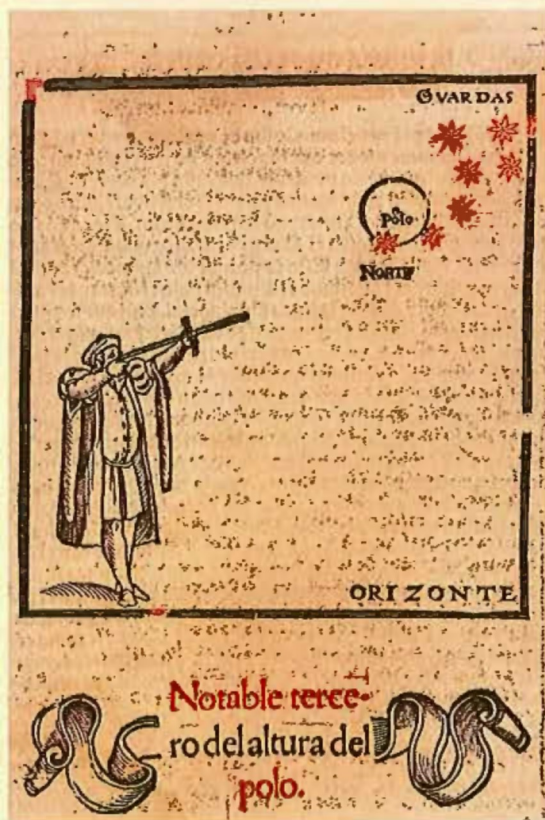 GVARDAS
Polo
NORTE
ORIZONTE
Notable terce-
ro del altura del
polo.